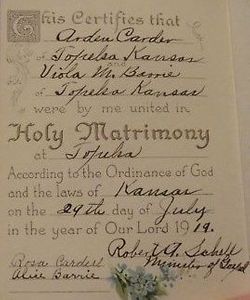 This Certifies that
Arden Carder
of Topeka Kansas
and
Viola M. Barrie
of Topeka Kansas
were by me united in
Holy Matrimony
at Topeka
According to the Ordinance of God
and the laws of Kansas
on the 29th day of July
in the year of Our Lord 1919.
Robert A. Schell
Minister of Gospel
Rosa Carder
Alice Barrie